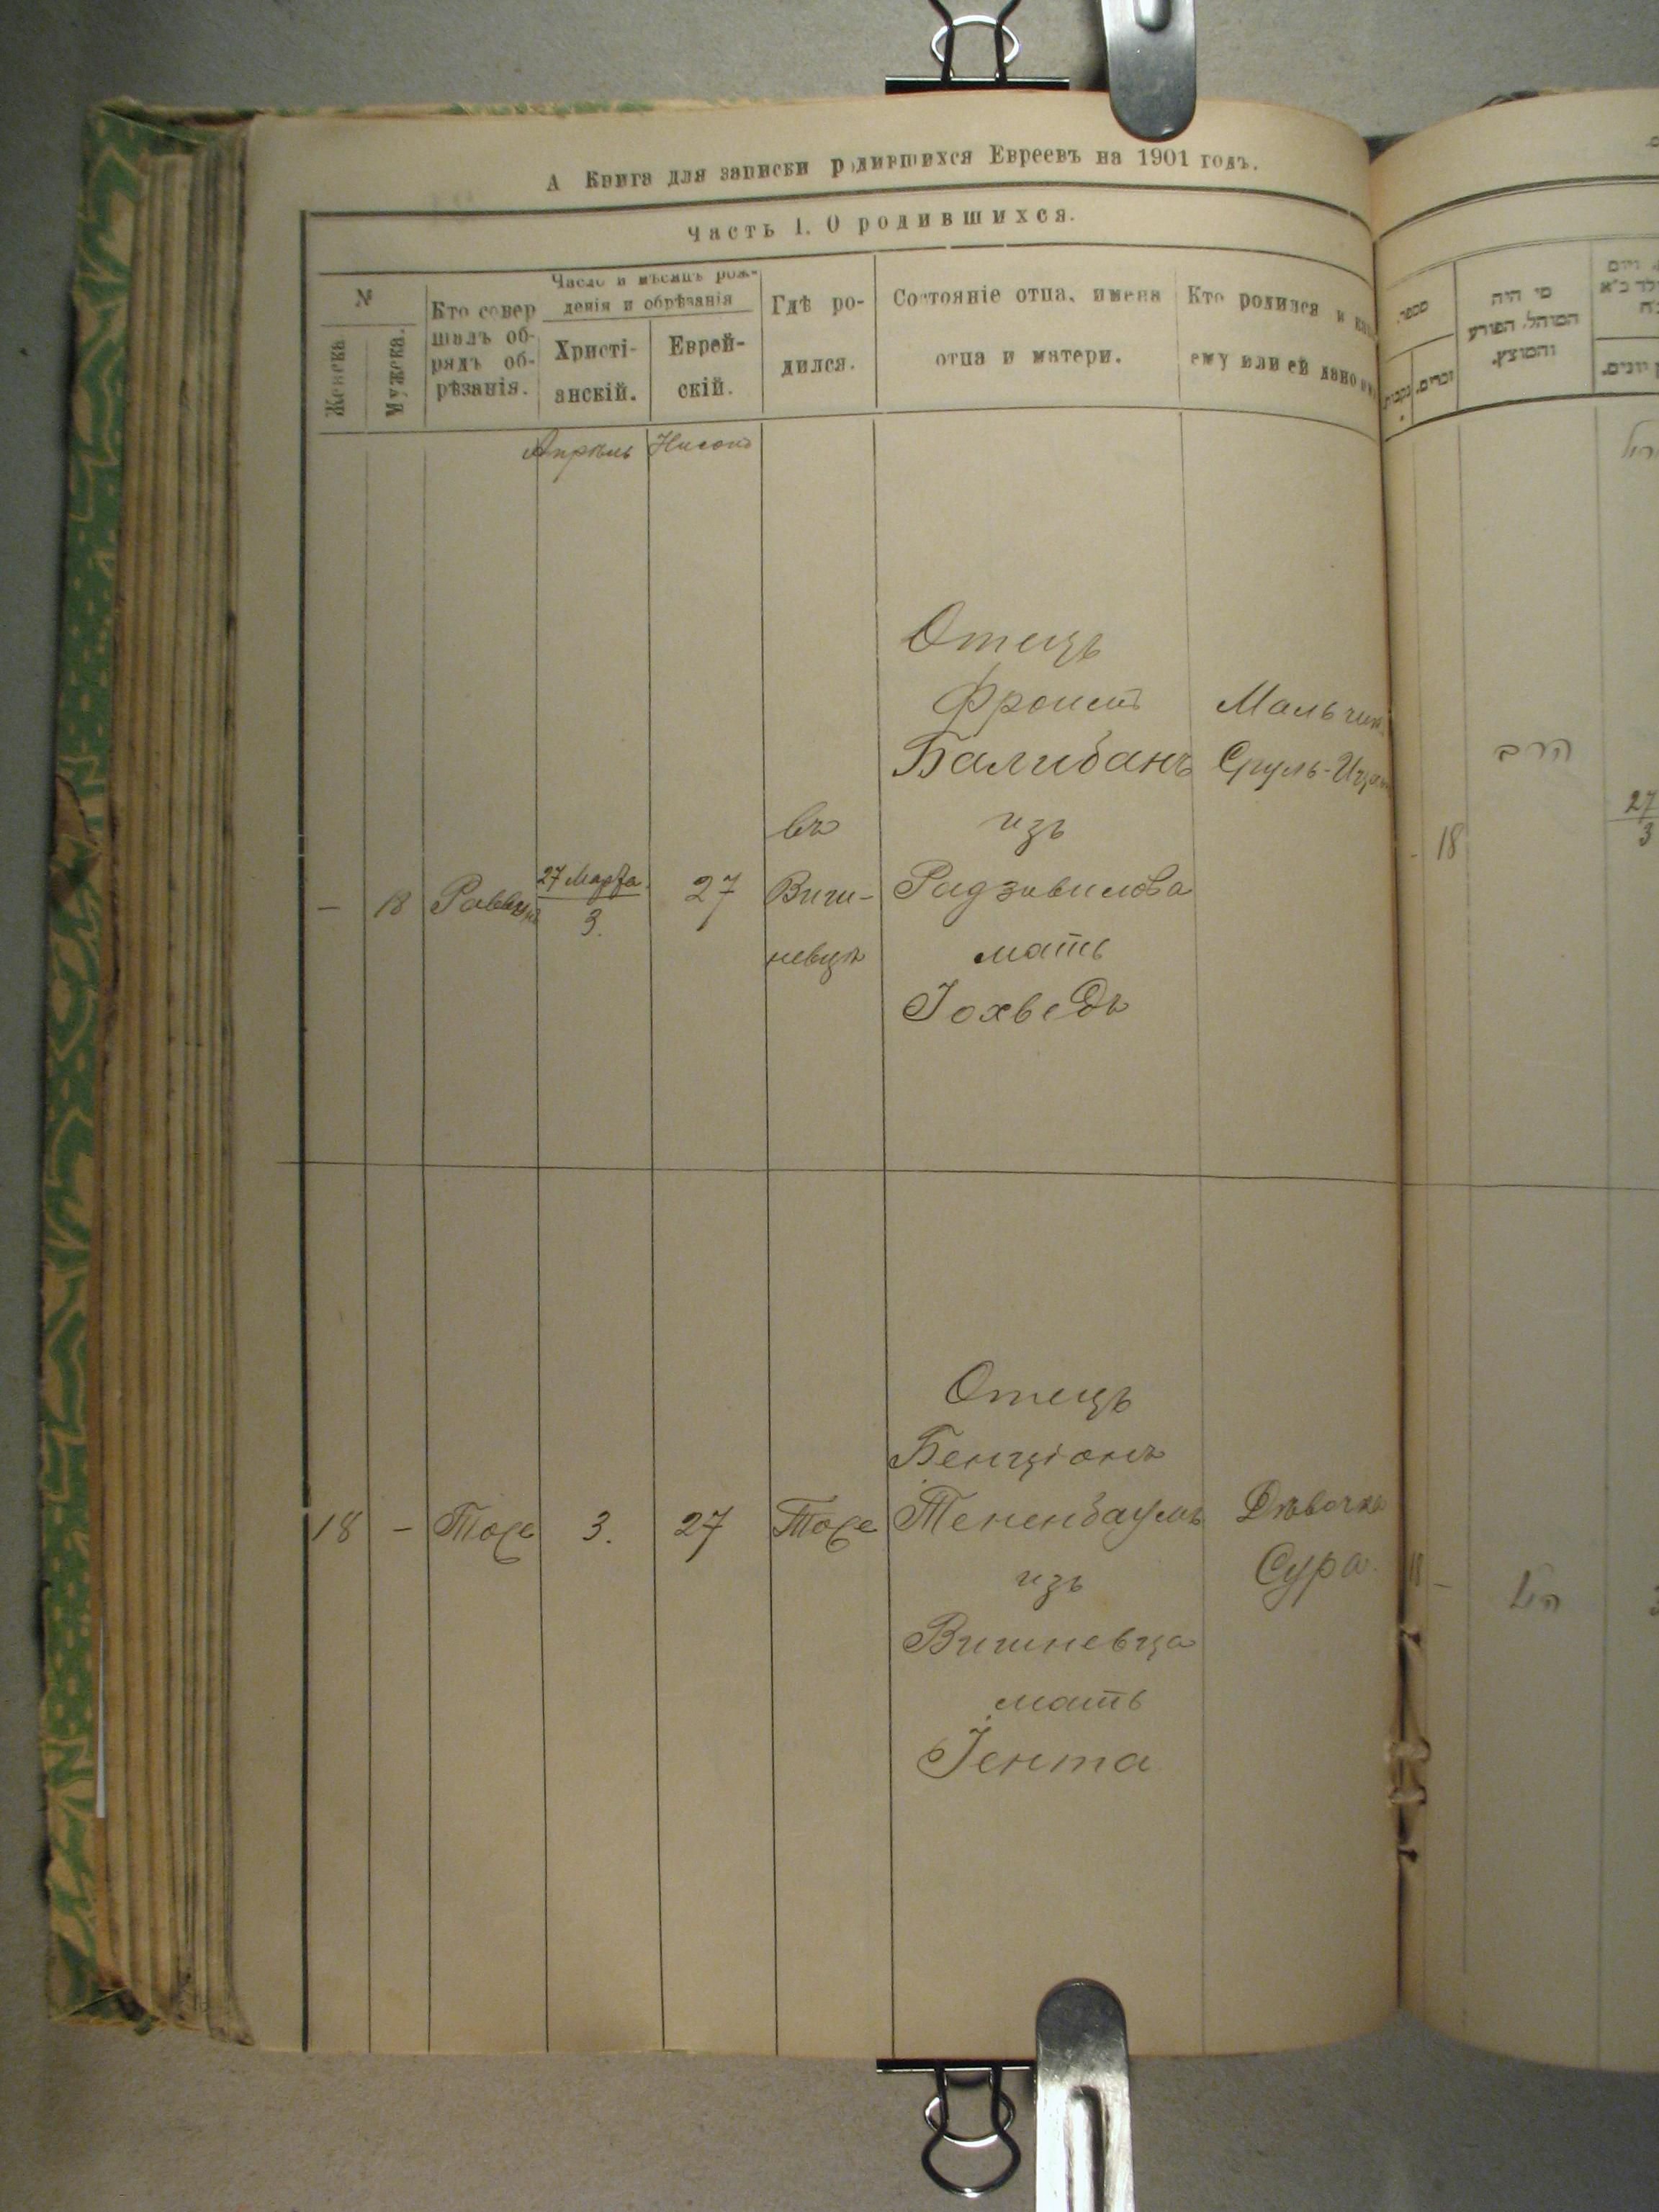 А Книга для записки родившихся Евреевъ на 1901 годъ.
Часть 1. О родившихся.
№
Женска
Мужеска.
Кто совер
шалъ об-
рядъ об-
рѣзанія.
Число и мѣсяцъ рож-
денія и обрѣзанія
Христі-
анскій.
Еврей-
скій.
Гдѣ ро-
дился.
Состояніе отца, имена
отца и матери.
Кто родился и
ему или ей дано
Апрѣль Нисонъ
– 18 Раввинъ 27 Марта 3. 27
въ
Виш-
невцѣ
Отецъ
Фроимъ
Балибанъ
изъ
Радзивилова
мать
Іохведъ
Мальчик
Сруль-
18 – Тоже 3. 27 Тоже
Отецъ
Бенціонъ
Тененбаумъ
изъ
Вишневца
мать
Іента
Дѣвочка
Сура.
מספר.
נקבות
זכרים.
מי היה
המוהל, הפורע
והמוצץ.
- 18
הרב
27
3
18 –